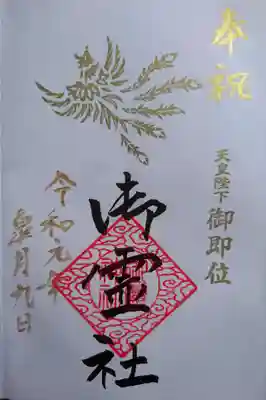 奉祝
天皇陛下
御即位
御霊社
令和元年
皐月九日